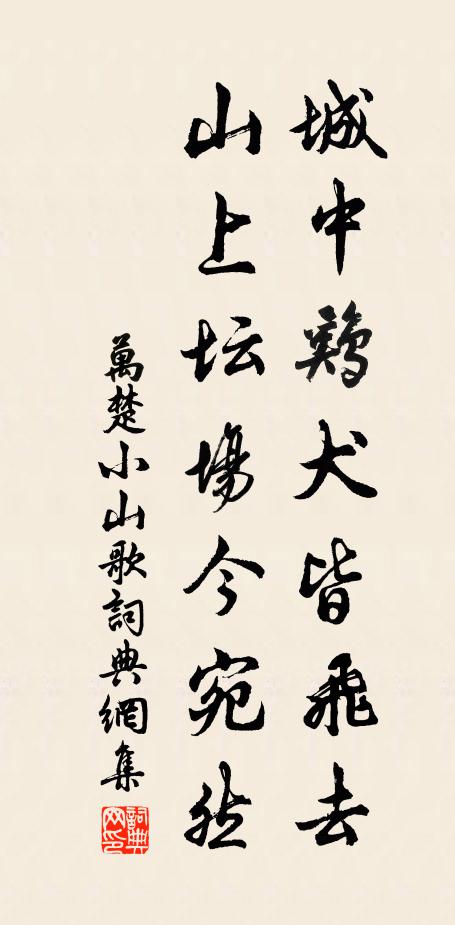 城中鷄犬皆飛去
山上坛場今宛然
萬楚小山歌詞典網集
詞典網印